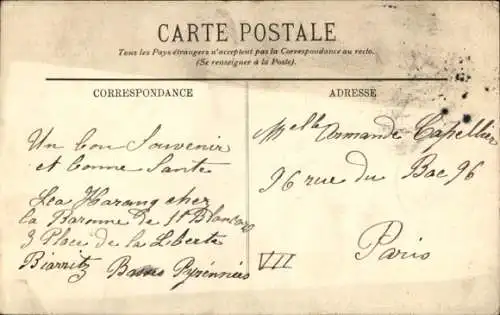 CARTE POSTALE
Tous les Pays étrangers n'acceptent pas la Correspondance au recto.
(Se renseigner à la Poste).
CORRESPONDANCE
ADRESSE
Un bon Souvenir
et bonne Sante
Lea Harang chez
la Baronne de St
3 Place de la Liberte
Biarritz Basses Pyrénnées
Melle Armande Capellier
96 rue du Bac 96
Paris
VII